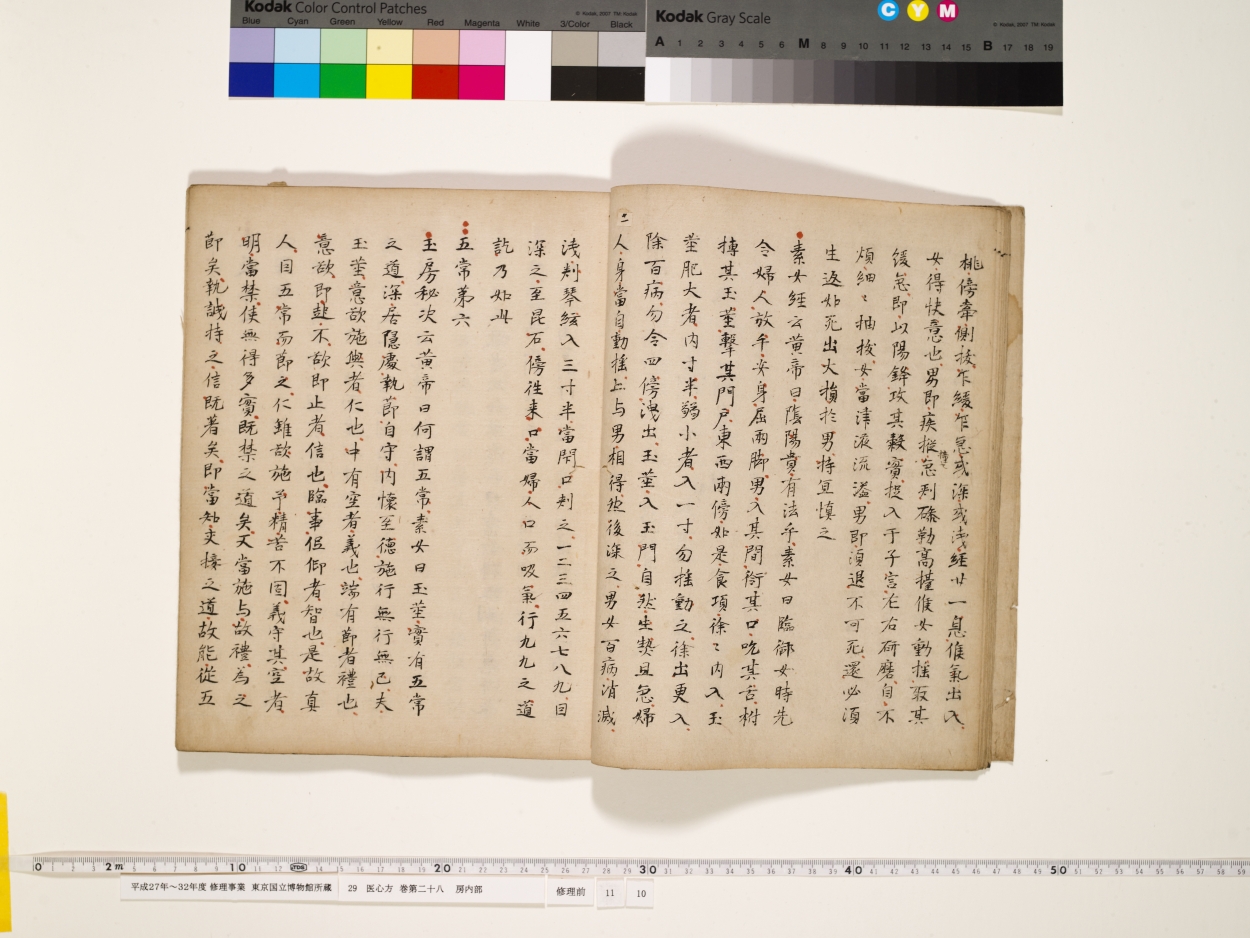 Kodak Color Control Patches
© Kodak, 2007 TM: Kodak
Blue Cyan Green Yellow Red Magenta White 3/Color Black
Kodak Gray Scale
C Y M
© Kodak, 2007 TM: Kodak
A 1 2 3 4 5 6 M 8 9 10 11 12 13 14 15 B 17 18 19
桃傍牽側拔乍緩乍急或深或浅経廿一息候氣出入
女得快意也男即疾摐急刾磔勒高擡候女動揺取其
緩急即以陽鋒攻其穀實捉入于子宮左右研磨自不
煩細〻抽拔女當津液流溢男即湏退不可死還必湏
生返如死出大損於男特冝慎之
素女経云黄帝曰陰陽貴有法乎素女曰臨御女時先
令婦人放手安身屈兩脚男入其間銜其口吮其舌拊
搏其玉莖撃其門戸東西兩傍如是食項徐〻内入玉
莖肥大者内寸半弱小者入一寸勿揺動之徐出更入
除百病勿令四傍洩出玉莖入玉門自然生熱且急婦
人身當自動揺上与男相得然後深之男女百病消滅
浅刾琴絃入三寸半當閇口刾之一二三四五六七八九曰
深之至昆石傍徃来口當婦人口而吸氣行九九之道
訖乃如此
五常第六
玉房秘决云黄帝曰何謂五常素女曰玉莖實有五常
之道深居隠處執節自守内懐至徳施行無行無已夫
玉莖意欲施與者仁也中有空者義也端有節者禮也
意欲即起不欲即止者信也臨事伍仰者智也是故真
人曰五常而節之仁雖欲施予精苦不固義守其空者
明當禁使無得多實既禁之道矣又當施与故禮為之
節矣執誠持之信既著矣即當知交接之道故能從五
0 2m 10 20 30 40 50
平成27年～32年度 修理事業 東京国立博物館所蔵
29 医心方 巻第二十八 房内部
修理前
11
10